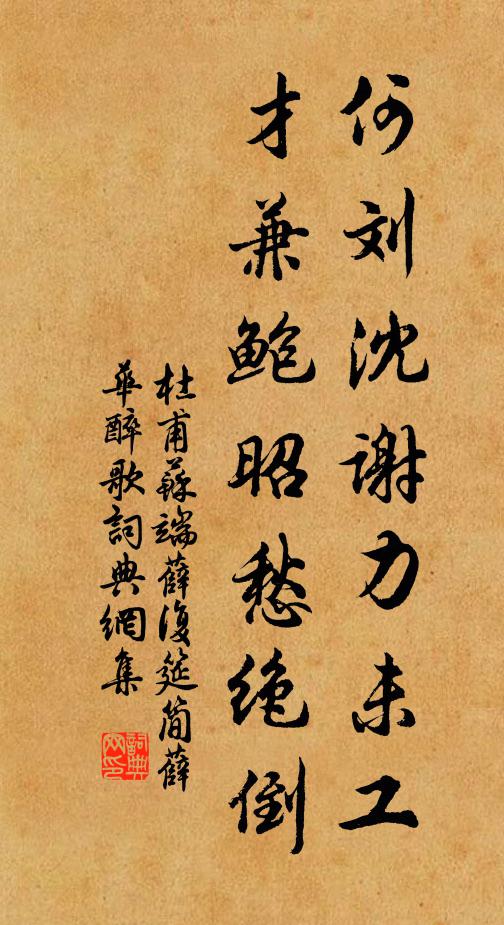 何刘沈谢力未工
才兼鲍昭愁绝倒
杜甫蘇端薛復筵簡薛
華醉歌詞典網集
詞典網印